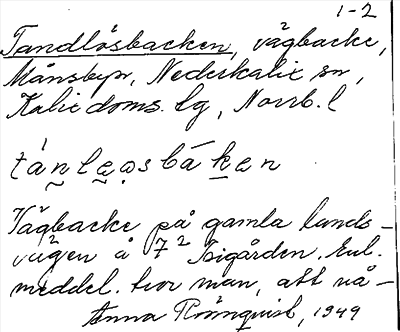 1-2
Tandlösbacken, vägbacke,
Månsbyn, Nederkalix sn,
Kalix doms. lg, Norrb. l
tánleo̥sbáken
Vägbacke på gamla lands-
vägen å 7² Isigården. Enl.
meddel. tror man, att nå-
Anna Rönnquist, 1949